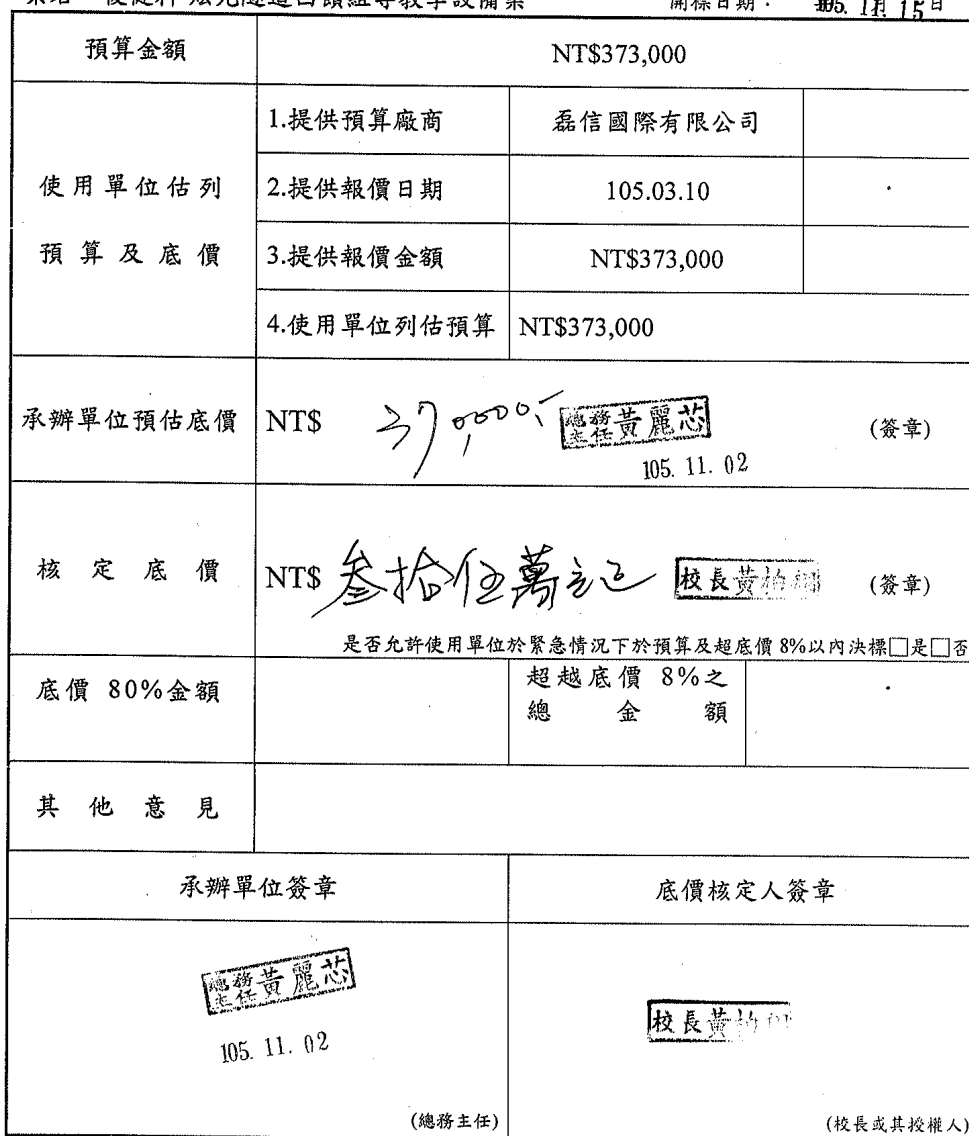 開標日期： 105. 11月 15日
預算金額 NT$373,000
使用單位估列
預算及底價
1.提供預算廠商 磊信國際有限公司
2.提供報價日期 105.03.10
3.提供報價金額 NT$373,000
4.使用單位列估預算 NT$373,000
承辦單位預估底價 NT$ 370,000.- 總務主任黃麗芯 (簽章)
105. 11. 02
核定底價 NT$ 叁拾伍萬元正 校長黃柏 (簽章)
是否允許使用單位於緊急情況下於預算及超底價 8%以內決標□是□否
底價 80%金額
超越底價 8%之
總金額
其他意見
承辦單位簽章 底價核定人簽章
總務主任黃麗芯
105. 11. 02
校長黃柏
(總務主任) (校長或其授權人)